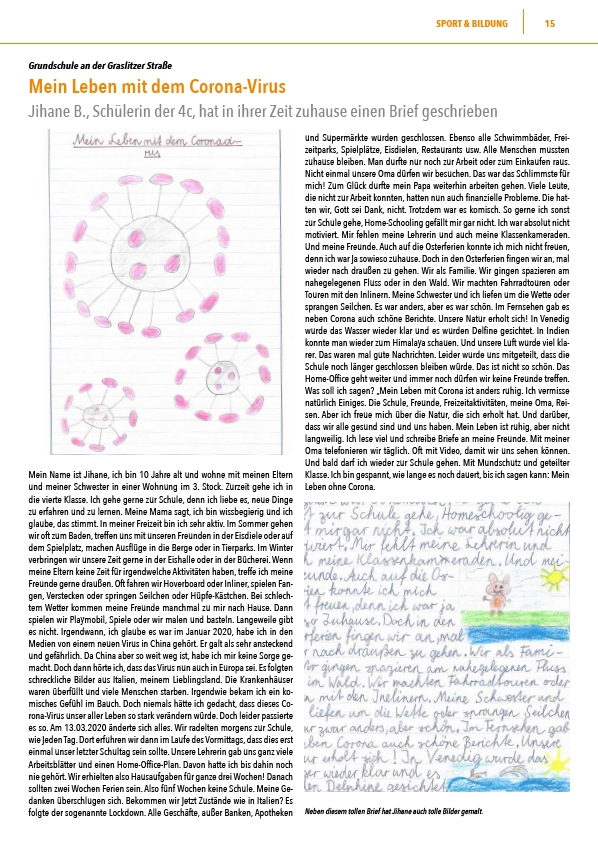 SPORT & BILDUNG 15
Grundschule an der Graslitzer Straße
Mein Leben mit dem Corona-Virus
Jihane B., Schülerin der 4c, hat in ihrer Zeit zuhause einen Brief geschrieben
Mein Leben mit dem Coronavi-
rus
Mein Name ist Jihane, ich bin 10 Jahre alt und wohne mit meinen Eltern
und meiner Schwester in einer Wohnung im 3. Stock. Zurzeit gehe ich in
die vierte Klasse. Ich gehe gerne zur Schule, denn ich liebe es, neue Dinge
zu erfahren und zu lernen. Meine Mama sagt, ich bin wissbegierig und ich
glaube, das stimmt. In meiner Freizeit bin ich sehr aktiv. Im Sommer gehen
wir oft zum Baden, treffen uns mit unseren Freunden in der Eisdiele oder auf
dem Spielplatz, machen Ausflüge in die Berge oder in Tierparks. Im Winter
verbringen wir unsere Zeit gerne in der Eishalle oder in der Bücherei. Wenn
meine Eltern keine Zeit für irgendwelche Aktivitäten haben, treffe ich meine
Freunde gerne draußen. Oft fahren wir Hoverboard oder Inliner, spielen Fan-
gen, Verstecken oder springen Seilchen oder Hüpfe-Kästchen. Bei schlech-
tem Wetter kommen meine Freunde manchmal zu mir nach Hause. Dann
spielen wir Playmobil, Spiele oder wir malen und basteln. Langeweile gibt
es nicht. Irgendwann, ich glaube es war im Januar 2020, habe ich in den
Medien von einem neuen Virus in China gehört. Er galt als sehr ansteckend
und gefährlich. Da China aber so weit weg ist, habe ich mir keine Sorge ge-
macht. Doch dann hörte ich, dass das Virus nun auch in Europa sei. Es folgten
schreckliche Bilder aus Italien, meinem Lieblingsland. Die Krankenhäuser
waren überfüllt und viele Menschen starben. Irgendwie bekam ich ein ko-
misches Gefühl im Bauch. Doch niemals hätte ich gedacht, dass dieses Co-
rona-Virus unser aller Leben so stark verändern würde. Doch leider passierte
es so. Am 13.03.2020 änderte sich alles. Wir radelten morgens zur Schule,
wie jeden Tag. Dort erfuhren wir dann im Laufe des Vormittags, dass dies erst
einmal unser letzter Schultag sein sollte. Unsere Lehrerin gab uns ganz viele
Arbeitsblätter und einen Home-Office-Plan. Davon hatte ich bis dahin noch
nie gehört. Wir erhielten also Hausaufgaben für ganze drei Wochen! Danach
sollten zwei Wochen Ferien sein. Also fünf Wochen keine Schule. Meine Ge-
danken überschlugen sich. Bekommen wir jetzt Zustände wie in Italien? Es
folgte der sogenannte Lockdown. Alle Geschäfte, außer Banken, Apotheken
und Supermärkte wurden geschlossen. Ebenso alle Schwimmbäder, Frei-
zeitparks, Spielplätze, Eisdielen, Restaurants usw. Alle Menschen mussten
zuhause bleiben. Man durfte nur noch zur Arbeit oder zum Einkaufen raus.
Nicht einmal unsere Oma dürfen wir besuchen. Das war das Schlimmste für
mich! Zum Glück durfte mein Papa weiterhin arbeiten gehen. Viele Leute,
die nicht zur Arbeit konnten, hatten nun auch finanzielle Probleme. Die hat-
ten wir, Gott sei Dank, nicht. Trotzdem war es komisch. So gerne ich sonst
zur Schule gehe, Home-Schooling gefällt mir gar nicht. Ich war absolut nicht
motiviert. Mir fehlen meine Lehrerin und auch meine Klassenkameraden.
Und meine Freunde. Auch auf die Osterferien konnte ich mich nicht freuen,
denn ich war ja sowieso zuhause. Doch in den Osterferien fingen wir an, mal
wieder nach draußen zu gehen. Wir als Familie. Wir gingen spazieren am
nahegelegenen Fluss oder in den Wald. Wir machten Fahrradtouren oder
Touren mit den Inlinern. Meine Schwester und ich liefen um die Wette oder
sprangen Seilchen. Es war anders, aber es war schön. Im Fernsehen gab es
neben Corona auch schöne Berichte. Unsere Natur erholt sich! In Venedig
wurde das Wasser wieder klar und es wurden Delfine gesichtet. In Indien
konnte man wieder zum Himalaya schauen. Und unsere Luft wurde viel kla-
rer. Das waren mal gute Nachrichten. Leider wurde uns mitgeteilt, dass die
Schule noch länger geschlossen bleiben würde. Das ist nicht so schön. Das
Home-Office geht weiter und immer noch dürfen wir keine Freunde treffen.
Was soll ich sagen? „Mein Leben mit Corona ist anders ruhig. Ich vermisse
natürlich Einiges. Die Schule, Freunde, Freizeitaktivitäten, meine Oma, Rei-
sen. Aber ich freue mich über die Natur, die sich erholt hat. Und darüber,
dass wir alle gesund sind und uns haben. Mein Leben ist ruhig, aber nicht
langweilig. Ich lese viel und schreibe Briefe an meine Freunde. Mit meiner
Oma telefonieren wir täglich. Oft mit Video, damit wir uns sehen können.
Und bald darf ich wieder zur Schule gehen. Mit Mundschutz und geteilter
Klasse. Ich bin gespannt, wie lange es noch dauert, bis ich sagen kann: Mein
Leben ohne Corona.
t zur Schule gehe, Homeschoolig ge-
t mir gar nicht. Ich war absolut nicht
viert. Mir fehlt meine Lehrerin und
h meine Klassenkameraden. Und mei
eunde. Auch auf die Os-
ien konnte ich mich
t freuen, denn ich war ja
so Zuhause. Doch in den
rferien fingen wir an, mal
r nach draußen zu gehen. Wir als Fami-
ir gingen spazieren am nahegelegenen Fluss
im Wald. Wir machten Fahrradtouren oder
n mit den Inelinern. Meine Schwester und
liefen um die Wette oder sprangen Seilchen
ur zwar anders, aber schön. Im Fernsehen gab
ben Corona auch schöne Berichte. Unsere
ur erholt sich! In Venedig wurde das
ser wieder klar und es
en Delphine gesichtet
Neben diesem tollen Brief hat Jihane auch tolle Bilder gemalt.